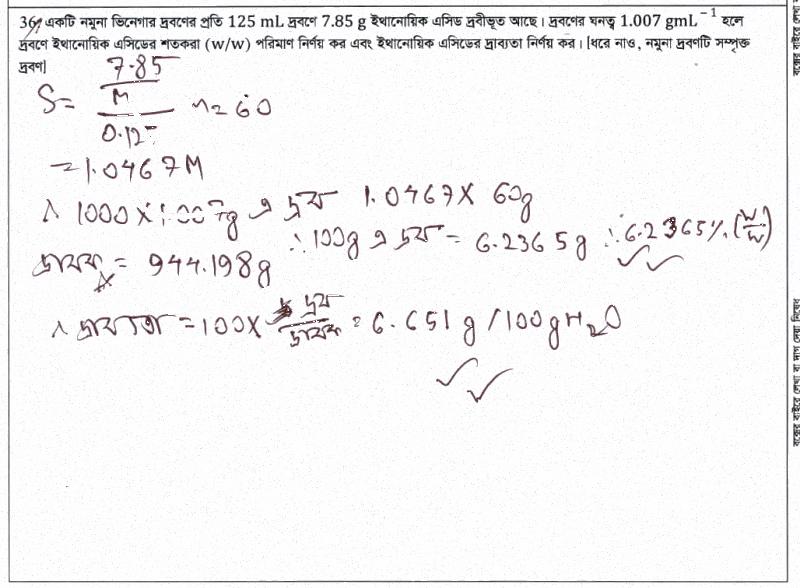 36. একটি নমুনা ভিনেগার দ্রবণের প্রতি 125 mL দ্রবণে 7.85 g ইথানোয়িক এসিড দ্রবীভূত আছে। দ্রবণের ঘনত্ব 1.007 gmL⁻¹ হলে
দ্রবণে ইথানোয়িক এসিডের শতকরা (w/w) পরিমাণ নির্ণয় কর এবং ইথানোয়িক এসিডের দ্রাব্যতা নির্ণয় কর। [ধরে নাও, নমুনা দ্রবণটি সম্পৃক্ত
দ্রবণ]
7.85
S = M = 60
0.125
= 1.0467 M
∴ 1000 X 1.007g এ দ্রব 1.0467 X 60g
∴ 100g এ দ্রব = 6.2365g ∴ 6.2365% (W/W)
দ্রাবক = 944.198g
∴ দ্রাব্যতা = 100 X দ্রব/দ্রাবক = 6.651 g /100g H₂O